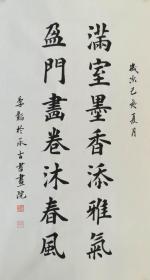 歲次己亥夏月
滿室墨香添雅氣
盈門畫卷沐春風
季韜於承古書畫院